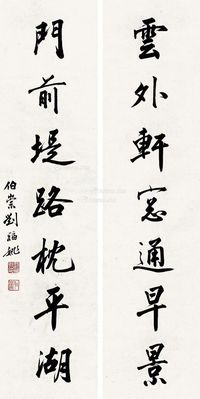 雲外軒窓通早景
門前堤路枕平湖
伯崇劉福姚